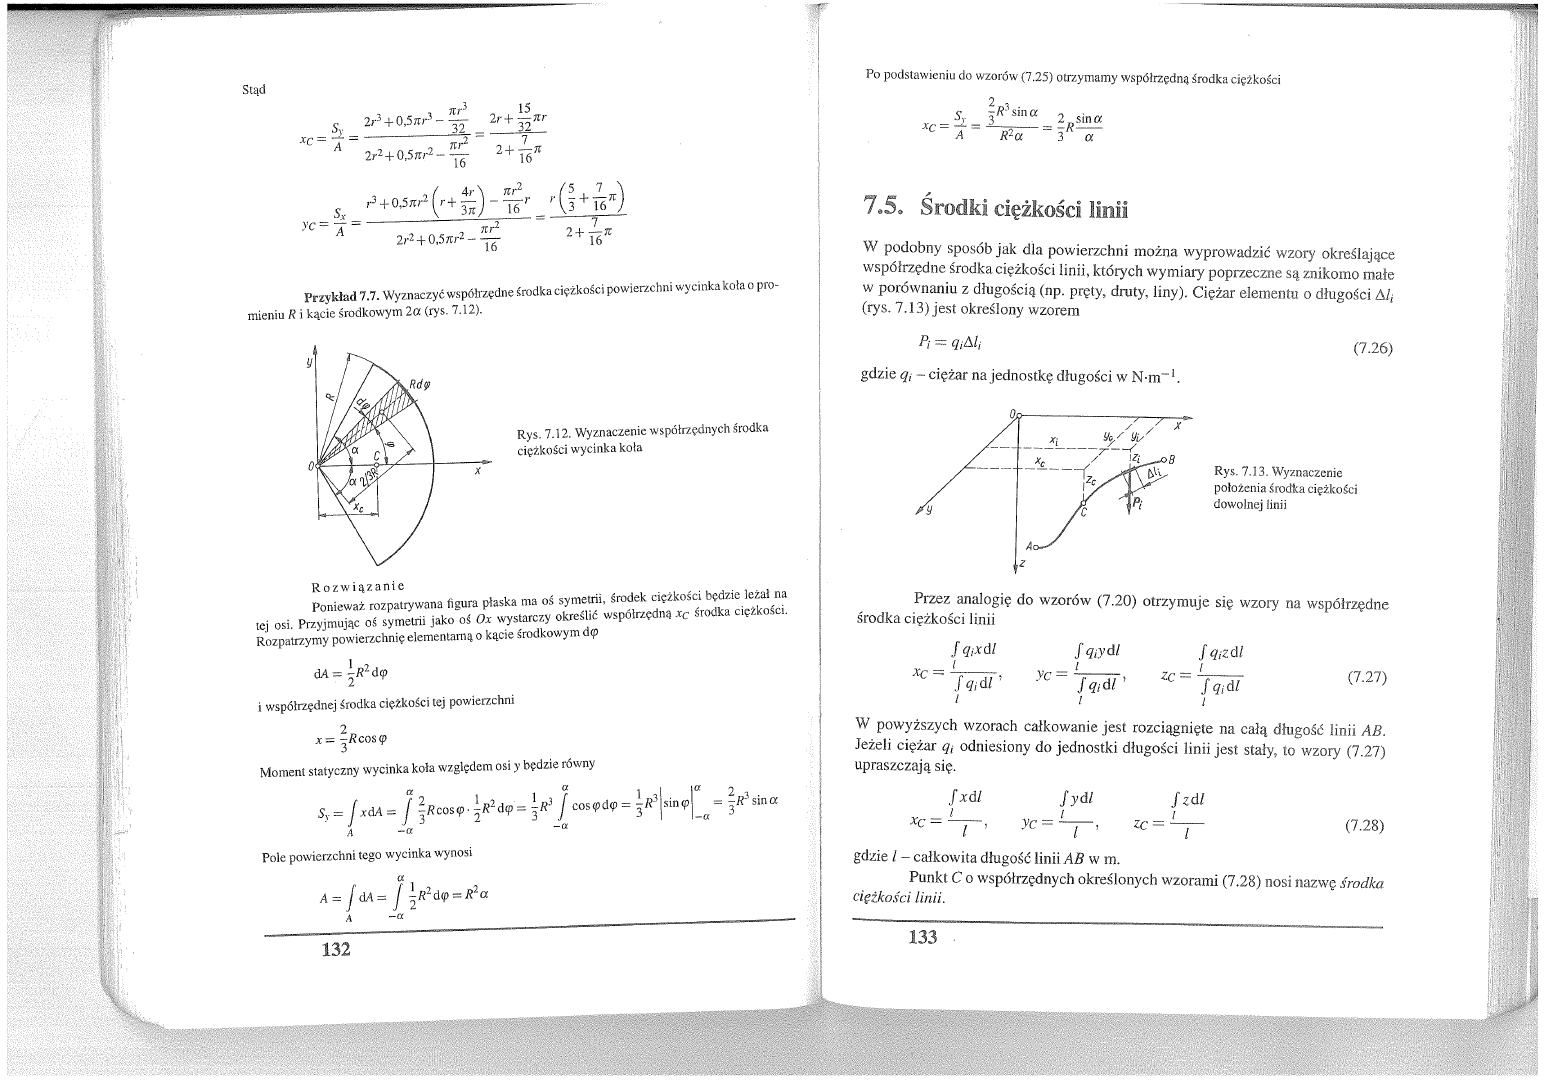 Stąd
xC = Sy/A = (2r³ + 0,5πr³ − πr³/32) / (2r² + 0,5πr² − πr²/16) = (2r + 15/32 πr) / (2 + 7/16 π)
yC = Sx/A = (r³ + 0,5πr² (r + 4r/3π) − πr²/16 r) / (2r² + 0,5πr² − πr²/16) = r (5/3 + 7/16 π) / (2 + 7/16 π)
Przykład 7.7. Wyznaczyć współrzędne środka ciężkości powierzchni wycinka koła o pro-
mieniu R i kącie środkowym 2α (rys. 7.12).
y
R
α
dφ
Rdφ
φ
α
C
0
x
α
2/3R
xc
Rys. 7.12. Wyznaczenie współrzędnych środka
ciężkości wycinka koła
Rozwiązanie
Ponieważ rozpatrywana figura płaska ma oś symetrii, środek ciężkości będzie leżał na
tej osi. Przyjmując oś symetrii jako oś Ox wystarczy określić współrzędną xC środka ciężkości.
Rozpatrzymy powierzchnię elementarną o kącie środkowym dφ
dA = 1/2 R² dφ
i współrzędnej środka ciężkości tej powierzchni
x = 2/3 R cos φ
Moment statyczny wycinka koła względem osi y będzie równy
Sy = ∫A x dA = ∫−α^α 2/3 R cos φ · 1/2 R² dφ = 1/3 R³ ∫−α^α cos φ dφ = 1/3 R³ |sin φ|−α^α = 2/3 R³ sin α
Pole powierzchni tego wycinka wynosi
A = ∫A dA = ∫−α^α 1/2 R² dφ = R² α
132
Po podstawieniu do wzorów (7.25) otrzymamy współrzędną środka ciężkości
xC = Sy/A = (2/3 R³ sin α) / (R² α) = 2/3 R sin α/α
7.5. Środki ciężkości linii
W podobny sposób jak dla powierzchni można wyprowadzić wzory określające
współrzędne środka ciężkości linii, których wymiary poprzeczne są znikomo małe
w porównaniu z długością (np. pręty, druty, liny). Ciężar elementu o długości Δli
(rys. 7.13) jest określony wzorem
Pi = qiΔli (7.26)
gdzie qi – ciężar na jednostkę długości w N·m−1.
0
x
xi
yc
yi
xc
zi
B
zc
Δli
Pi
C
y
A
z
Rys. 7.13. Wyznaczenie
położenia środka ciężkości
dowolnej linii
Przez analogię do wzorów (7.20) otrzymuje się wzory na współrzędne
środka ciężkości linii
xC = ∫l qi x dl / ∫l qi dl, yC = ∫l qi y dl / ∫l qi dl, zC = ∫l qi z dl / ∫l qi dl (7.27)
W powyższych wzorach całkowanie jest rozciągnięte na całą długość linii AB.
Jeżeli ciężar qi odniesiony do jednostki długości linii jest stały, to wzory (7.27)
upraszczają się.
xC = ∫l x dl / l, yC = ∫l y dl / l, zC = ∫l z dl / l (7.28)
gdzie l – całkowita długość linii AB w m.
Punkt C o współrzędnych określonych wzorami (7.28) nosi nazwę środka
ciężkości linii.
133